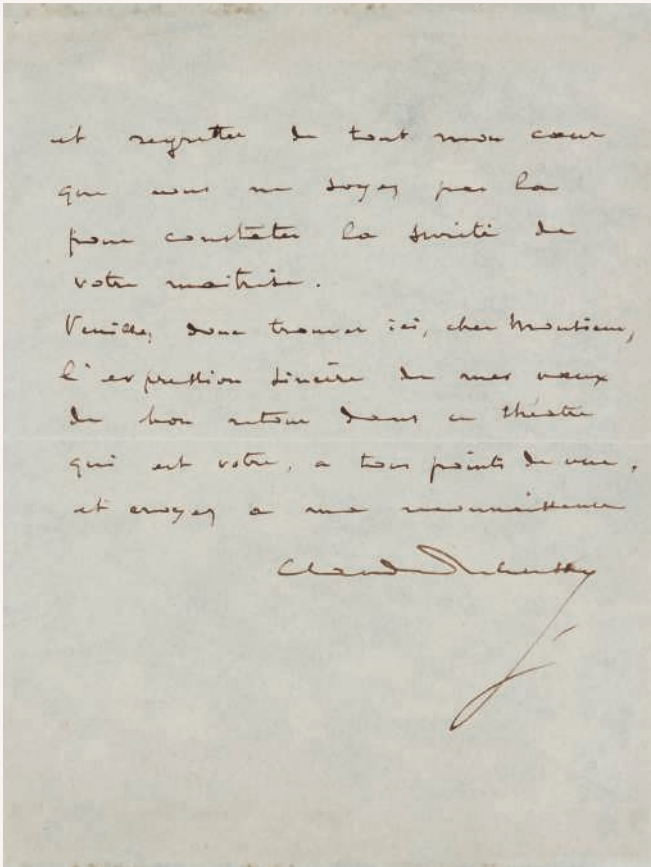 et regrette de tout mon cœur
que vous ne soyez pas là
pour constater la sûreté de
votre maîtrise.
Veuillez donc trouver ici, cher Monsieur,
l'expression sincère de mes vœux
de bon retour dans ce théâtre
qui est votre, à tous points de vue,
et croyez à ma reconnaissance
Claude Debussy